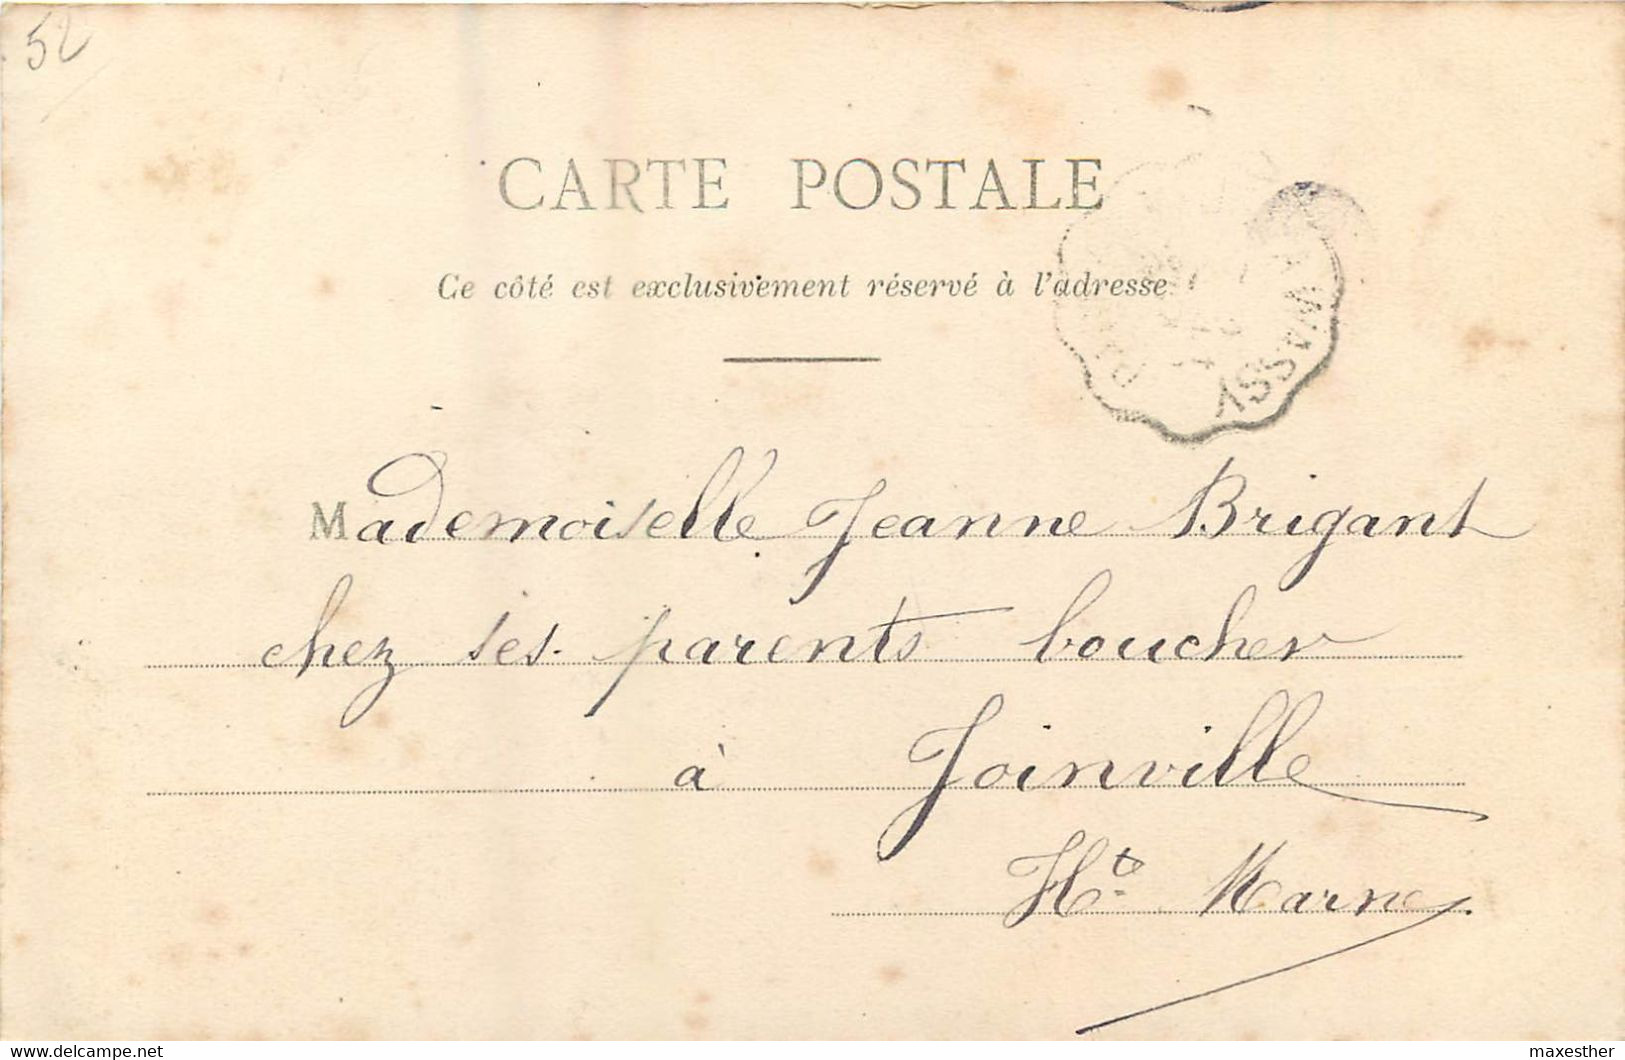 52
CARTE POSTALE
Ce côté est exclusivement réservé à l'adresse
A WASSY
Mademoiselle Jeanne Brigant
chez ses parents boucher
à Joinville
Hte Marne
www.delcampe.net
maxesther